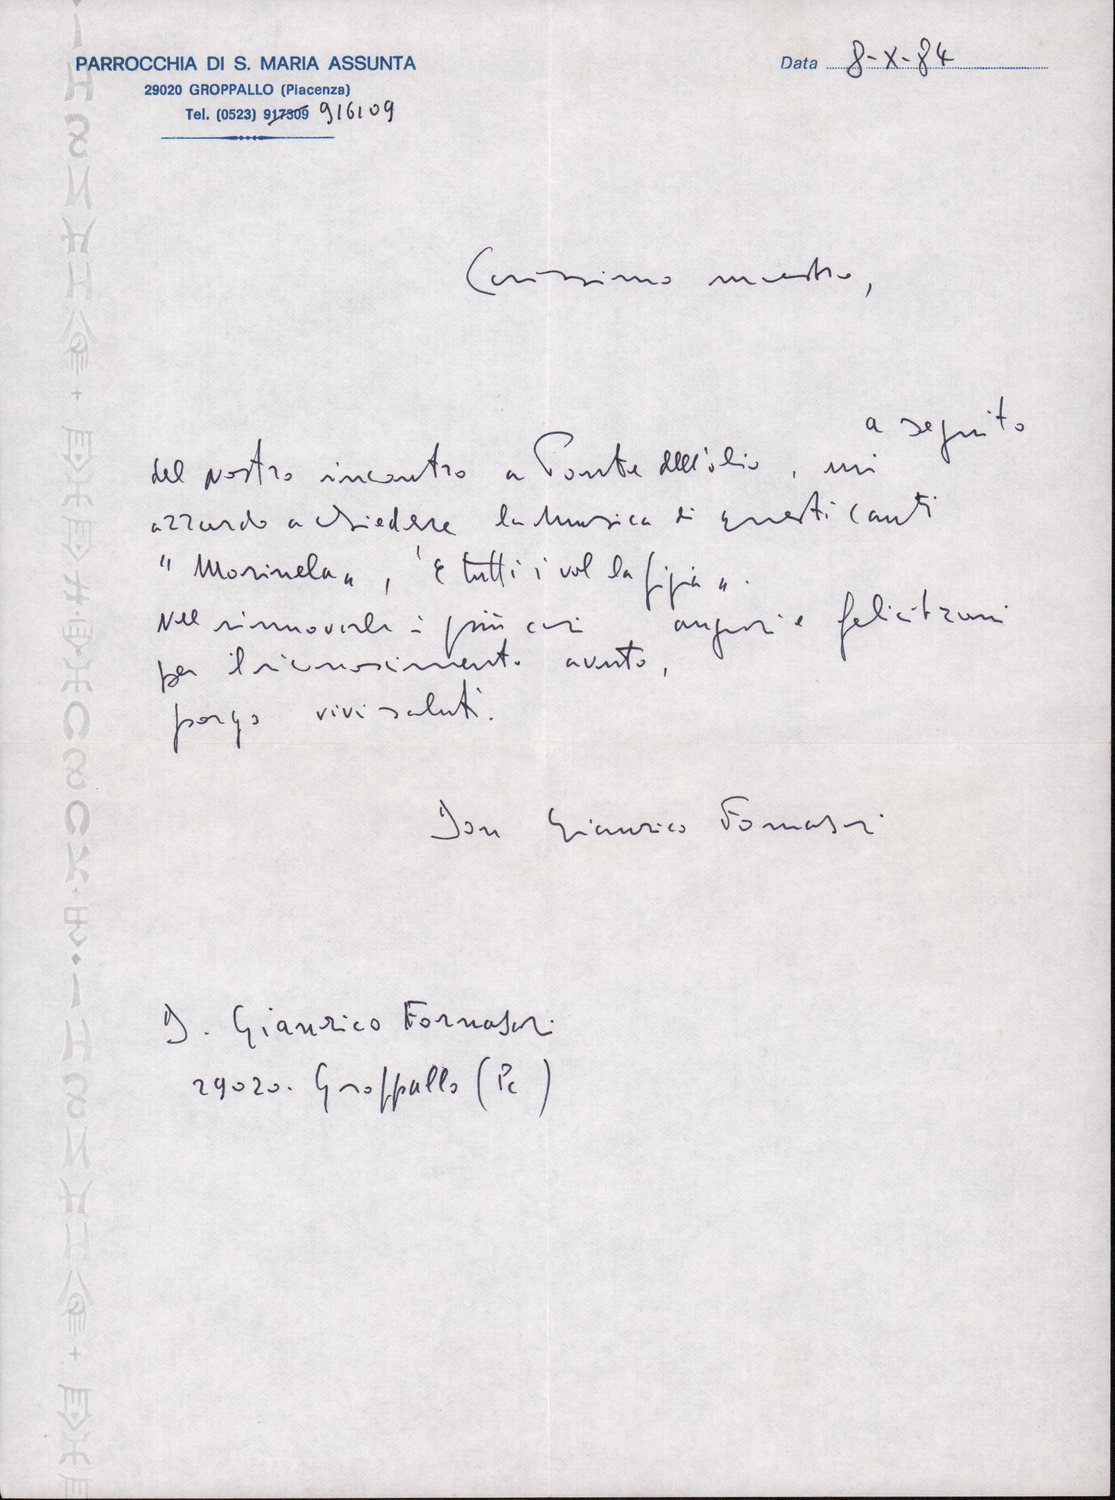 PARROCCHIA DI S. MARIA ASSUNTA
29020 GROPPALLO (Piacenza)
Tel. (0523) 917309 916109
Data 8-X-84
Carissimo maestro,
a seguito
del nostro incontro a Ponte dell'olio, mi
azzardo a chiedere la musica di questi canti
"Morinela", 'E tutti i vol la pipa".
Nel rinnovarle i più cari auguri e felicitazioni
per il riconoscimento avuto,
porgo vivi saluti.
Don Gianrico Fornasari
D. Gianrico Fornasari
29020. Groppallo (Pc)